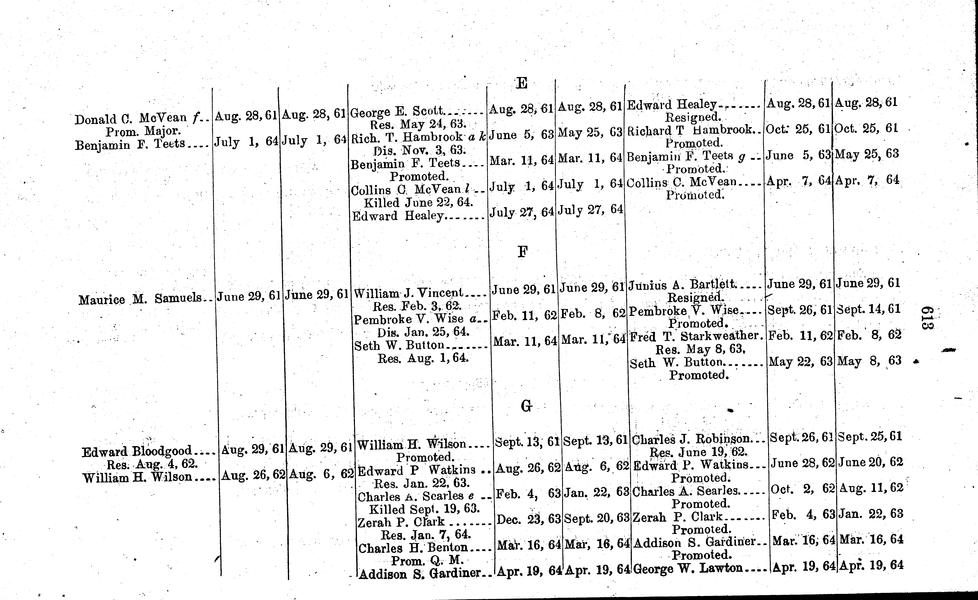 E
Donald C. McVean f.. Aug. 28, 61 Aug. 28, 61 George E. Scott...... Aug. 28, 61 Aug. 28, 61 Edward Healey....... Aug. 28, 61 Aug. 28, 61
Prom. Major. Res. May 24, 63. Resigned.
Benjamin F. Teets.... July 1, 64 July 1, 64 Rich. T. Hambrook a k June 5, 63 May 25, 63 Richard T Hambrook.. Oct. 25, 61 Oct. 25, 61
Dis. Nov. 3, 63. Promoted.
Benjamin F. Teets.... Mar. 11, 64 Mar. 11, 64 Benjamin F. Teets g .. June 5, 63 May 25, 63
Promoted. Promoted.
Collins C. McVean l .. July 1, 64 July 1, 64 Collins C. McVean.... Apr. 7, 64 Apr. 7, 64
Killed June 22, 64. Promoted.
Edward Healey....... July 27, 64 July 27, 64
F
Maurice M. Samuels.. June 29, 61 June 29, 61 William J. Vincent.... June 29, 61 June 29, 61 Junius A. Bartlett..... June 29, 61 June 29, 61
Res. Feb. 3, 62. Resigned.
Pembroke V. Wise a.. Feb. 11, 62 Feb. 8, 62 Pembroke V. Wise.... Sept. 26, 61 Sept. 14, 61
Dis. Jan. 25, 64. Promoted.
Seth W. Button....... Mar. 11, 64 Mar. 11, 64 Fred T. Starkweather. Feb. 11, 62 Feb. 8, 62
Res. Aug. 1, 64. Res. May 8, 63,
Seth W. Button....... May 22, 63 May 8, 63
Promoted.
613
G
Edward Bloodgood.... Aug. 29, 61 Aug. 29, 61 William H. Wilson.... Sept. 13, 61 Sept. 13, 61 Charles J. Robinson... Sept. 26, 61 Sept. 25, 61
Res. Aug. 4, 62. Promoted. Res. June 19, 62.
William H. Wilson.... Aug. 26, 62 Aug. 6, 62 Edward P Watkins .. Aug. 26, 62 Aug. 6, 62 Edward P. Watkins... June 28, 62 June 20, 62
Res. Jan. 22, 63. Promoted.
Charles A. Scarles e .. Feb. 4, 63 Jan. 22, 63 Charles A. Searles..... Oct. 2, 62 Aug. 11, 62
Killed Sept. 19, 63. Promoted.
Zerah P. Clark ....... Dec. 23, 63 Sept. 20, 63 Zerah P. Clark....... Feb. 4, 63 Jan. 22, 63
Res. Jan. 7, 64. Promoted.
Charles H. Benton.... Mar. 16, 64 Mar, 16, 64 Addison S. Gardiner.. Mar. 16, 64 Mar. 16, 64
Prom. Q. M. Promoted.
Addison S. Gardiner.. Apr. 19, 64 Apr. 19, 64 George W. Lawton.... Apr. 19, 64 Apr. 19, 64